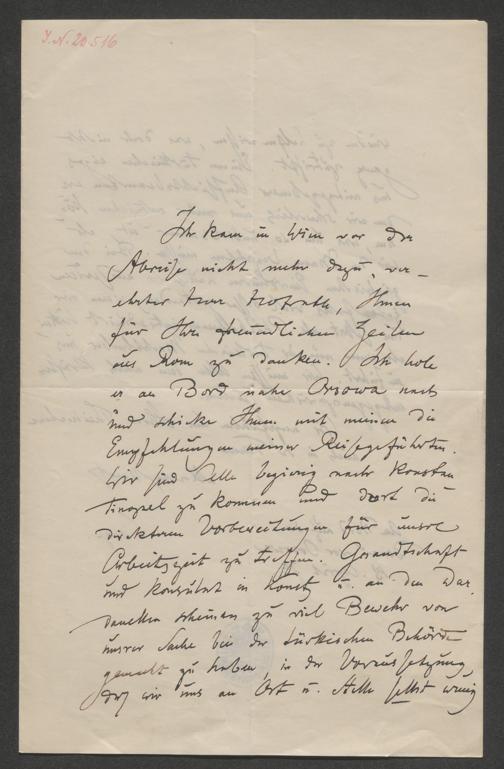 J. N. 20.516
Ich kam in Wien vor der
Abreise nicht mehr dazu, ver-
ehrter Herr Hofrath, Ihnen
für Ihre freundlichen Zeilen
aus Rom zu danken. Ich hole
es an Bord nahe Orsowa nach
und schicke Ihnen mit meinen die
Empfehlungen meiner Reisegefährten.
Wir sind Alle begierig nach Konstan
tinopel zu kommen und dort die
direkteren Vorbereitungen für unsre
Arbeitszeit zu treffen. Gesandtschaft
und Konsulat in Konst. u. an den Dar
danellen scheinen zu viel Bewehr von
unsrer Sache bei der türkischen Behörde
gemacht zu haben, in der Voraussetzung,
daß wir uns an Ort u. Stelle selbst wenig